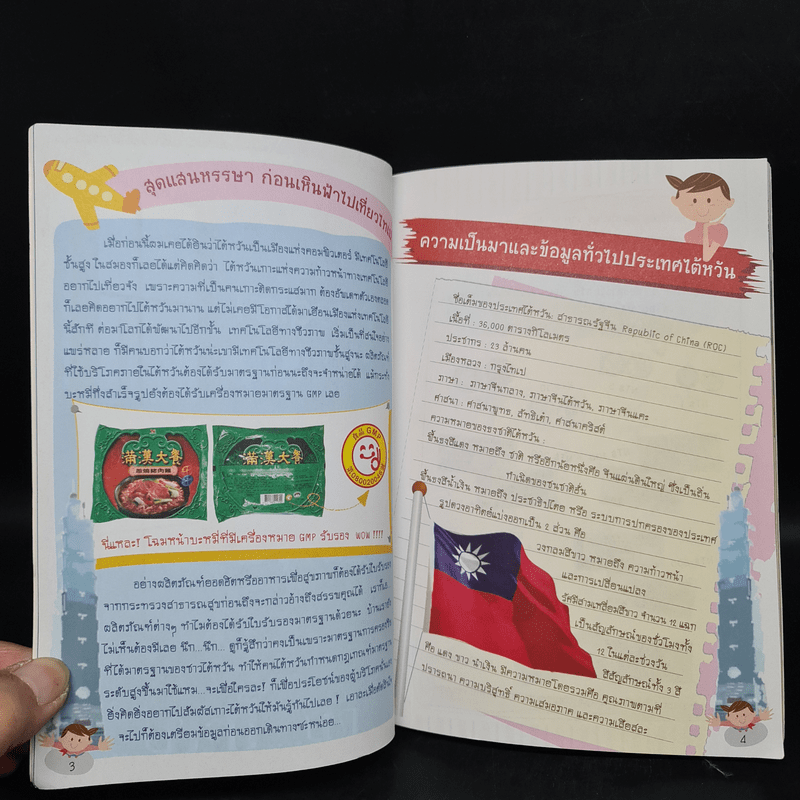 สุดแสนหรรษา ก่อนเหินฟ้าไปเที่ยวไต้หวัน
เมื่อก่อนนี้ผมเคยได้ยินว่าไต้หวันเป็นเมืองแห่งคอมพิวเตอร์ มีเทคโนโลยี
ชั้นสูง ในสมองก็เลยได้แต่คิดคิดว่า ไต้หวันเกาะแห่งความก้าวหน้าทางเทคโนโลยี
อยากไปเที่ยวจัง เพราะความที่เป็นคนเกาะติดกระแสมาก ต้องอัพเดทตัวเองตลอด
ก็เลยคิดอยากไปไต้หวันมานาน แต่ไม่เคยมีโอกาสได้มาเยือนเมืองแห่งเทคโนโลยี
นี้สักที ต่อมาโลกได้พัฒนาไปอีกขั้น เทคโนโลยีทางชีวภาพ เริ่มเป็นที่สนใจอย่าง
แพร่หลาย ก็มีคนบอกว่าไต้หวันน่ะเขามีเทคโนโลยีทางชีวภาพขั้นสูงนะ ผลิตภัณฑ์
ที่ใช้บริโภคภายในไต้หวันต้องได้รับมาตรฐานก่อนนะถึงจะจำหน่ายได้ แม้กระทั่ง
บะหมี่กึ่งสำเร็จรูปยังต้องได้รับเครื่องหมายมาตรฐาน GMP เลย
滿漢大餐
蔥燒豬肉麵
滿漢大餐
食品 GMP
นี่แหละ! โฉมหน้าบะหมี่ที่มีเครื่องหมาย GMP รับรอง WOW !!!!
อย่างผลิตภัณฑ์ยอดฮิตหรืออาหารเพื่อสุขภาพก็ต้องได้รับใบรับรอง
จากกระทรวงสาธารณสุขก่อนถึงจะกล่าวอ้างถึงสรรพคุณได้
ผลิตภัณฑ์ต่างๆ ทำไมต้องได้รับใบรับรองมาตรฐานด้วยนะ
ไม่เห็นต้องมีเลย นึก...นึก... ดูก็รู้สึกว่าคงเป็นเพราะมาตรฐานการครองชีพ
ที่ได้มาตรฐานของชาวไต้หวัน ทำให้คนไต้หวันกำหนดกฎเกณฑ์มาตรฐาน
ระดับสูงขึ้นมาใช้แหม...จะเพื่อใครละ! ก็เพื่อประโยชน์ของผู้บริโภคนั่นแหละ
ยิ่งคิดยิ่งอยากไปสัมผัสเกาะไต้หวันให้มันรู้กันไปเลย !
จะไปก็ต้องเตรียมข้อมูลก่อนออกเดินทางซะหน่อย...
3
ความเป็นมาและข้อมูลทั่วไปประเทศไต้หวัน
ชื่อเต็มของประเทศไต้หวัน: สาธารณรัฐจีน Republic of China (ROC)
เนื้อที่ : 36,000 ตารางกิโลเมตร
ประชากร : 23 ล้านคน
เมืองหลวง : กรุงไทเป
ภาษา : ภาษาจีนกลาง, ภาษาจีนไต้หวัน, ภาษาจีนแคะ
ศาสนา : ศาสนาพุทธ, ลัทธิเต๋า, ศาสนาคริสต์
ความหมายของธงชาติไต้หวัน :
พื้นธงสีแดง หมายถึง ชาติ หรืออีกนัยหนึ่งคือ จีนแผ่นดินใหญ่ ซึ่งเป็นถิ่น
กำเนิดของชนชาติฮั่น
พื้นธงสีน้ำเงิน หมายถึง ประชาธิปไตย หรือ ระบบการปกครองของประเทศ
รูปดวงอาทิตย์แบ่งออกเป็น 2 ส่วน คือ
วงกลมสีขาว หมายถึง ความก้าวหน้า
และการเปลี่ยนแปลง
รัศมีสามเหลี่ยมสีขาว จำนวน 12 แฉก
เป็นสัญลักษณ์ของชั่วโมงทั้ง
12 ในแต่ละช่วงวัน
สีสัญลักษณ์ทั้ง 3 สี
คือ แดง ขาว น้ำเงิน มีความหมายโดยรวมคือ คุณภาพตามที่
ปรารถนา ความบริสุทธิ์ ความเสมอภาค และความเสียสละ
4